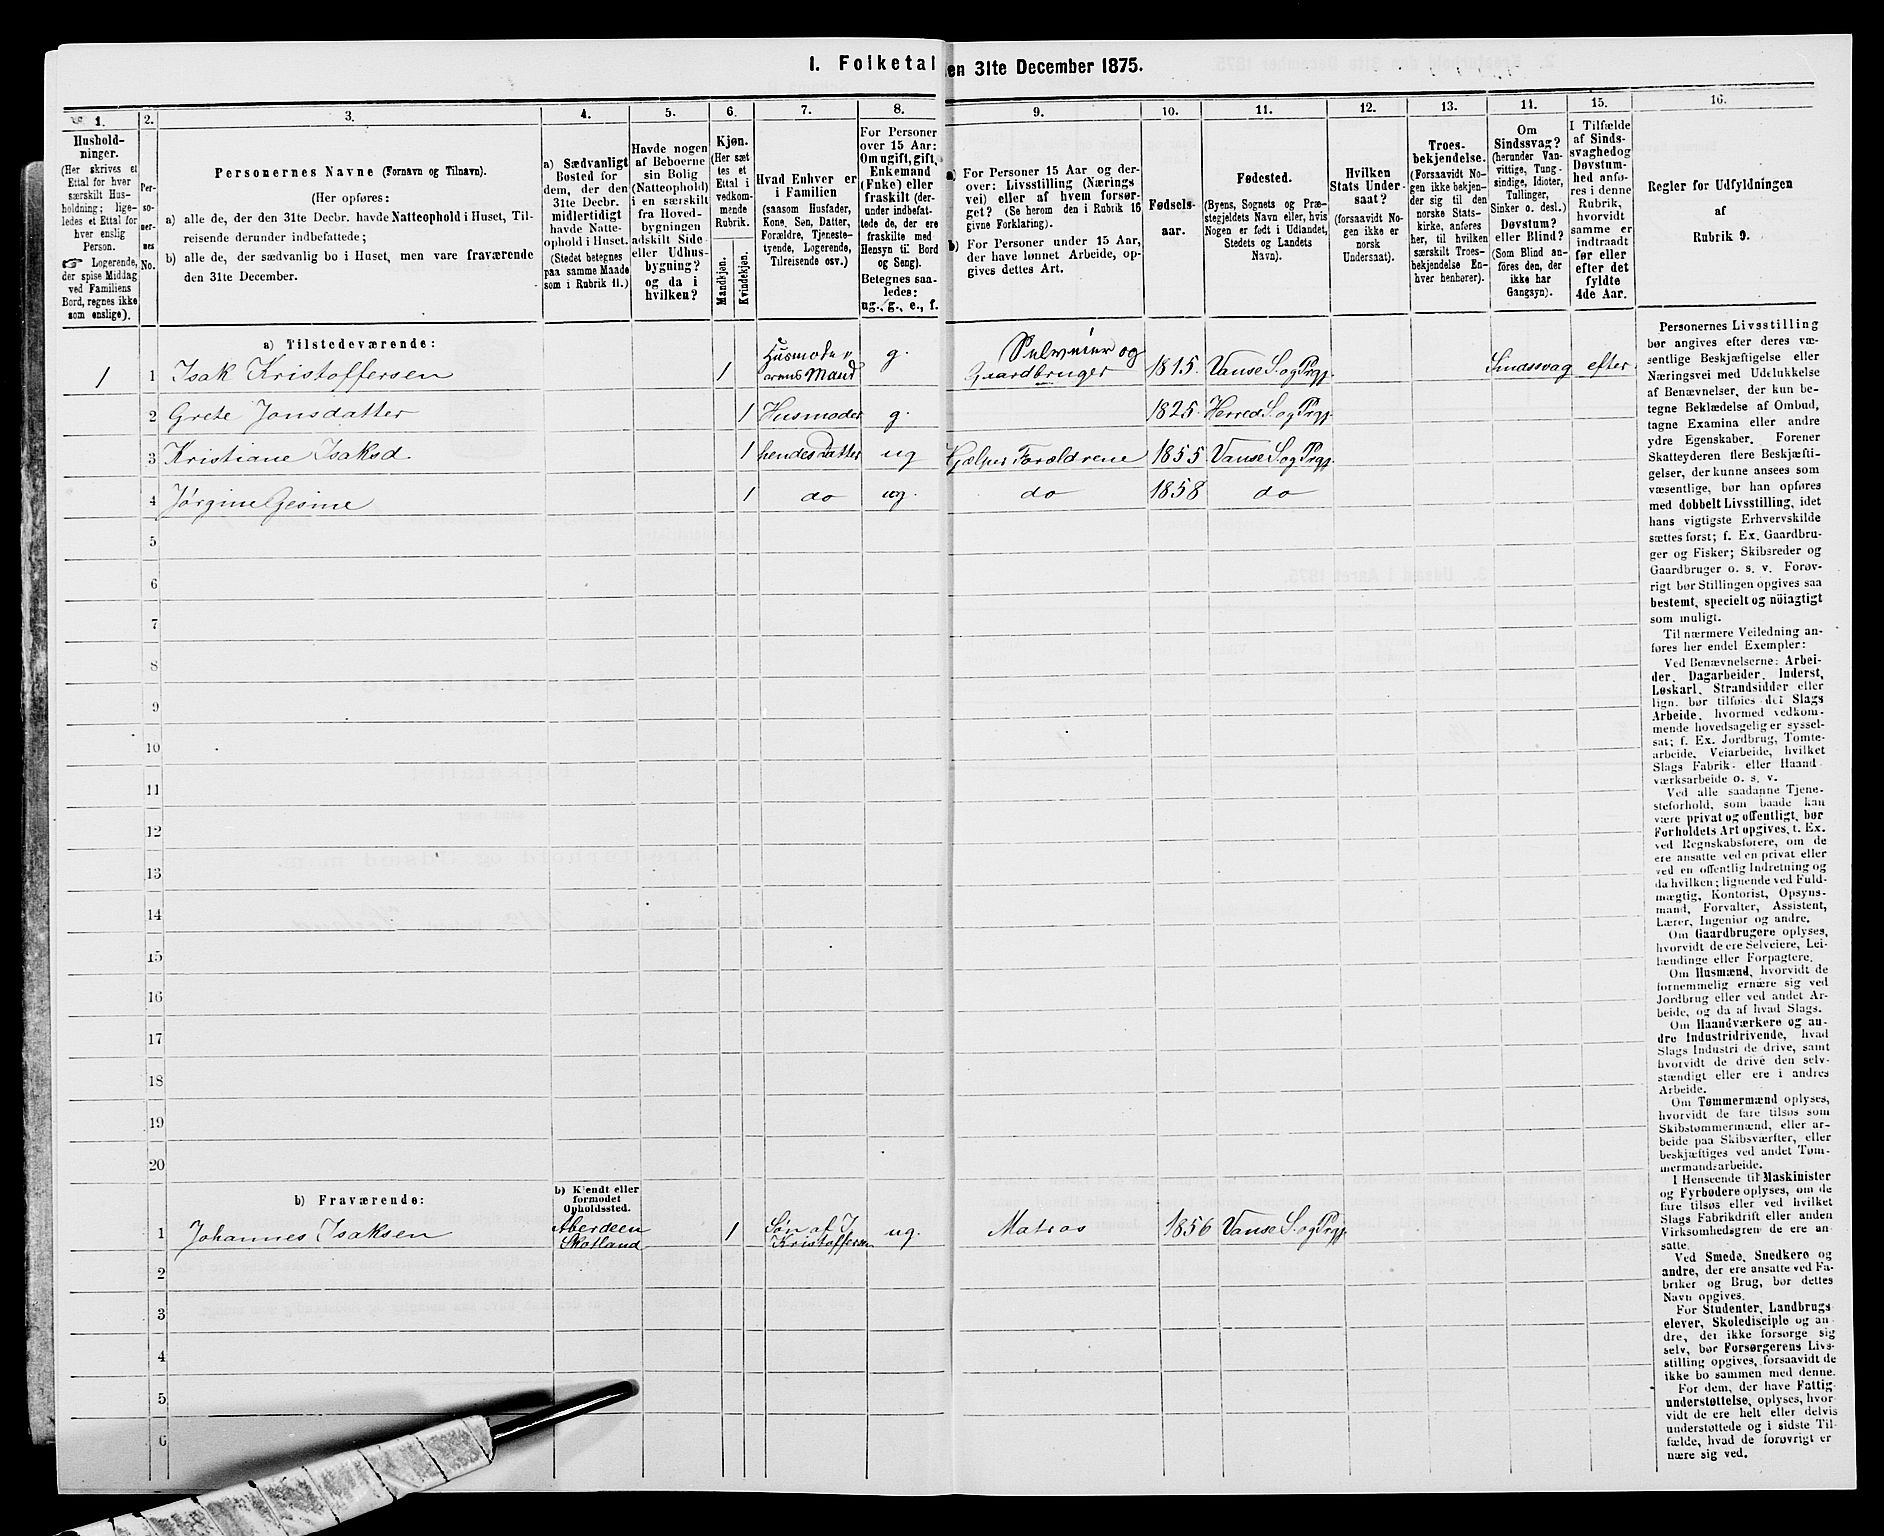 I. Folketal den 31te December 1875.
1.
Hushold-
ninger.
(Her skrives et
Ettal for hver
særskilt Hus-
holdning; lige-
ledes et Ettal for
hver enslig
Person.
☞ Logerende,
der spise Middag
ved Familiens
Bord, regnes ikke
som enslige).
2.
Per-
so-
ner-
nes
No.
3.
Personernes Navne (Fornavn og Tilnavn).
(Her opføres:
a) alle de, der den 31te Decbr. havde Natteophold i Huset, Til-
reisende derunder indbefattede;
b) alle de, der sædvanlig bo i Huset, men vare fraværende
den 31te December.
4.
a) Sædvanligt
Bosted for
dem, der den
31te Decbr.
midlertidigt
havde Natte-
ophold i Huset.
(Stedet betegnes
paa samme Maade
som i Rubrik 11.)
5.
Havde nogen
af Beboerne
sin Bolig
(Natteophold)
i en særskilt
fra Hoved-
bygningen
adskilt Side-
eller Udhus-
bygning?
og da i
hvilken?
6.
Kjøn.
(Her sæt
tes et
Ettal i
vedkom-
mende
Rubrik.
Mandkjøn.
Kvindekjøn.
7.
Hvad Enhver er
i Familien
(saasom Husfader,
Kone, Søn, Datter,
Forældre, Tjeneste-
tyende, Logerende,
Tilreisende osv.)
8.
For Personer
over 15 Aar:
Om ugift, gift,
Enkemand
(Enke) eller
fraskilt (der-
under indbefat-
tede de, der ere
fraskilte med
Hensyn til Bord
og Seng).
Betegnes saa-
ledes:
ug., g., e., f.
9.
a) For Personer 15 Aar og der-
over: Livsstilling (Nærings
vei) eller af hvem forsør-
get? (Se herom den i Rubrik 16
givne Forklaring).
b) For Personer under 15 Aar,
der have lønnet Arbeide, op-
gives dettes Art.
10.
Fødsels-
aar.
11.
Fødested.
(Byens, Sognets og Præ-
stegjeldets Navn eller, hvis
Nogen er født i Udlandet,
Stedets og Landets
Navn).
12.
Hvilken
Stats Under-
saat?
(forsaavidt No-
gen ikke er
norsk
Undersaat).
13.
Troes-
bekjendelse.
(Forsaavidt No-
gen ikke bekjen-
der sig til den
norske Stats-
kirke, anføres
her, til hvilken
særskilt Troes-
bekjendelse En-
hver henhører).
14.
Om
Sindssvag?
(herunder Van-
vittige, Tung-
sindige, Idioter,
Tullinger,
Sinker o. desl.)
Døvstum?
eller Blind?
(Som Blind an-
føres den, der
ikke har
Gangsyn).
15.
I Tilfælde
af Sinds-
svaghed og
Døvstum-
hed anfø-
res i denne
Rubrik,
hvorvidt
samme er
indtraadt
før eller
efter det
fyldte
4de Aar.
16.
Regler for Udfyldningen
af
Rubrik 9.
a) Tilstedeværende:
1 1 Isak Kristoffersen 1 Husmoderens Mand g. Selveier og Gaardbruger 1815 Vanse S. og Prgj. Sindssvag efter
2 Grete Jonsdatter 1 Husmoder g. 1825 Herred S. og Prgj.
3 Kristiane Isaksd. 1 hendes Datter ug Hjælper Forældrene 1855 Vanse S. og Prgj.
4 Jørgine Gesine 1 do ug. do 1858 do
5
6
7
8
9
10
11
12
13
14
15
16
17
18
19
20
b) Fraværende:
b) Kjendt eller
formodet
Opholdssted.
1 Johannes Isaksen Aberdeen Skotland 1 Søn af I. Kristoffersen ug. Matros 1856 Vanse S. og Prgj.
2
3
4
5
6
Personernes Livsstilling
bør angives efter deres væ-
sentlige Beskjæftigelse eller
Næringsvei med Udelukkelse
af Benævnelser, der kun be-
tegne Beklædelse af Ombud,
tagne Examina eller andre
ydre Egenskaber. Forener
Skatteyderen flere Beskjæfti-
gelser, der kunne ansees som
væsentlige, bør han opføres
med dobbelt Livsstilling, idet
hans vigtigste Erhvervskilde
sættes først; f. Ex. Gaardbru-
ger og Fisker; Skibsreder og
Gaardbruger o. s. v. Forøv-
rigt bør Stillingen opgives saa
bestemt, specielt og nøiagtigt
som muligt.
Til nærmere Veiledning an-
føres her endel Exempler:
Ved Benævnelserne: Arbei-
der, Dagarbeider, Inderst,
Løskarl, Strandsidder eller
lign. bør tilføies det Slags
Arbeide, hvormed vedkom-
mende hovedsagelig er syssel-
sat; f. Ex. Jordbrug, Tomte-
arbeide, Veiarbeide, hvilket
Slags Fabrik- eller Haand-
værksarbeide o. s. v.
Ved alle saadanne Tjene-
steforhold, som baade kan
være privat og offentligt, bør
Forholdets Art opgives, t. Ex.
ved Regnskabsførere, om de
ere ansatte ved en privat eller
ved en offentlig Indretning og
da hvilken; lignende ved Fuld-
mægtig, Kontorist, Opsyns-
mand, Forvalter, Assistent,
Lærer, Ingeniør og andre.
Om Gaardbrugere oplyses,
hvorvidt de ere Selveiere, Lei-
lændinge eller Forpagtere.
Om Husmænd, hvorvidt de
fornemmelig ernære sig ved
Jordbrug eller ved andet Ar-
beide, og da af hvad Slags.
Om Haandværkere og an-
dre Industridrivende, hvad
Slags Industri de drive, samt
hvorvidt de drive den selv-
stændigt eller ere i andres
Arbeide.
Om Tømmermænd oplyses,
hvorvidt de fare tilsøs som
Skibstømmermænd, eller ar-
beide paa Skibsværfter, eller
beskjæftiges ved andet Tøm-
mermandsarbeide.
I Henseende til Maskinister
og Fyrbødere oplyses, om de
fare tilsøs eller ved hvilket
Slags Fabrikdrift eller anden
Virksomhedsgren de ere an-
satte.
Ved Smede, Snedkere og
andre, der ere ansatte ved Fa-
briker og Brug, bør dettes
Navn opgives.
For Studenter, Landbrugs
elever, Skoledisciple og an-
dre, der ikke forsørge sig
selv, bør Forsørgerens Livs-
stilling opgives, forsaavidt de
ikke bo sammen med denne.
For dem, der have Fattig-
understøttelse, oplyses, hvor-
vidt de ere helt eller delvis
understøttede og i sidste Til-
fælde, hvad de forøvrigt er
nære sig ved.